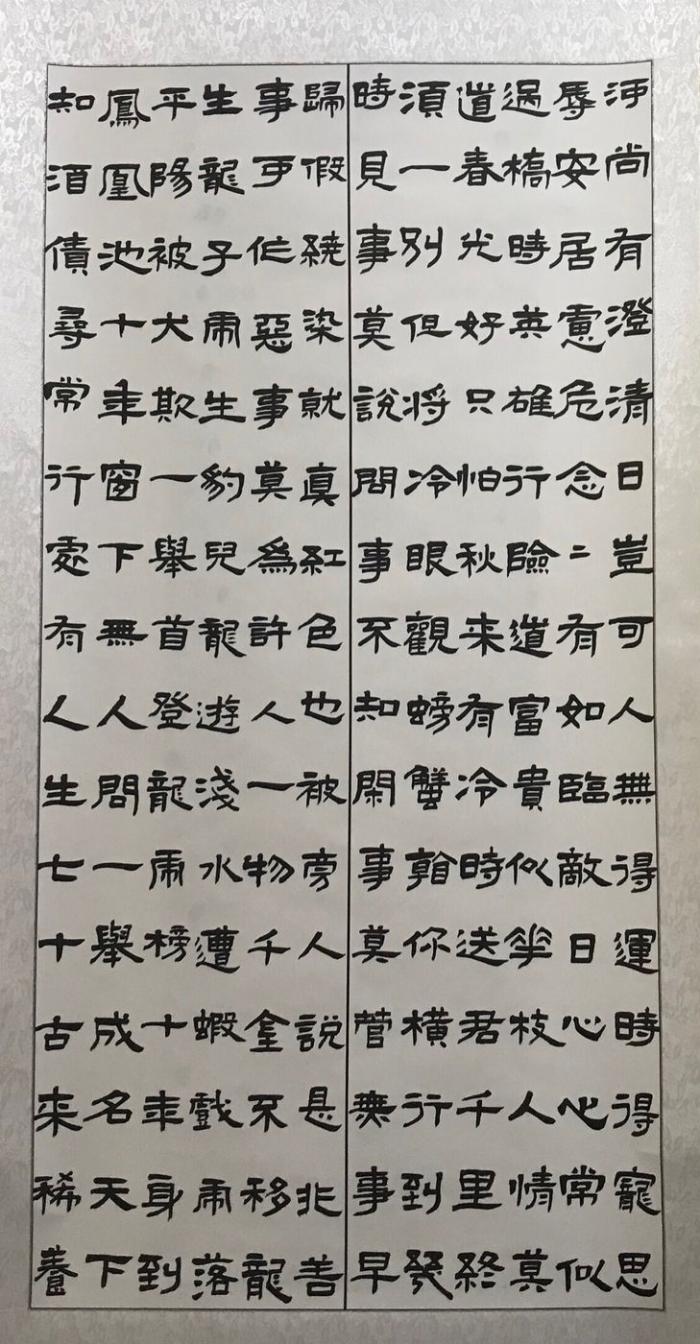 河尚有澄清日豈可人無得運時得寵思
辱安居慮危念二有如臨敵日心心常似
過橋時英雄行險道富貴似華枝人情莫
道春光好只怕秋来有冷時送君千里終
須一別但将冷眼觀螃蟹看你橫行到幾
時見事莫說問事不知閑事莫管無事早
歸假繞染就真紅色也被旁人說是非善
事可作惡事莫為許人一物千金不移龍
生龍子虎生豹兒龍遊淺水遭蝦戲虎落
平陽被犬欺一舉首登龍虎榜十年身到
鳳凰池十年窗下無人問一舉成名天下
知酒債尋常行處有人生七十古来稀養